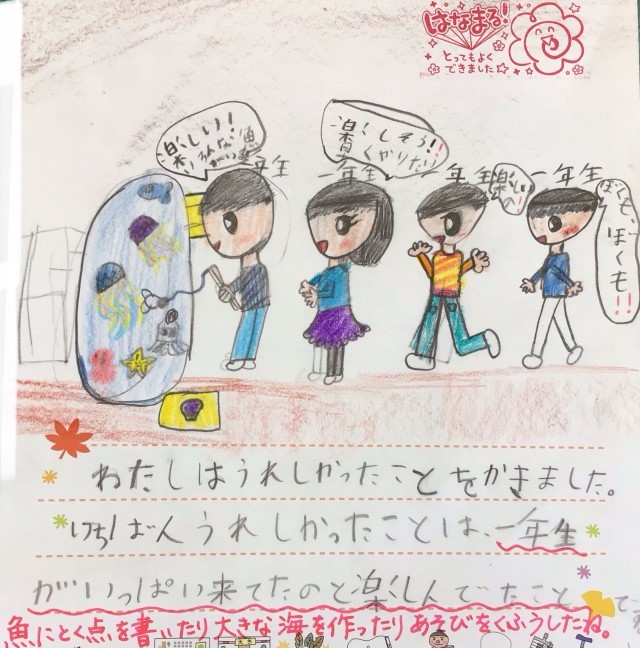 はなまる!
とってもよく
できました
楽しい!
魚
一年生
一年生
楽しそう!!
くかりたい
一年生
楽しい
の!!
一年生
ぼくも
ぼくも!!
わたしはうれしかったことをかきました。
いちばんうれしかったことは、一年生
がいっぱい来てたのと楽しんでたこと
魚にとく点を書いたり大きな海を作ったりあそびをくふうしたね。